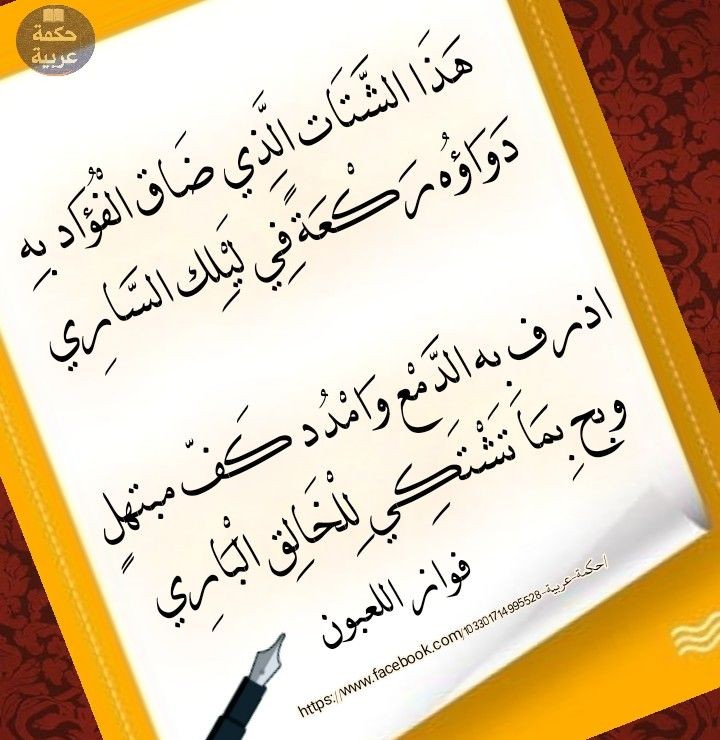 حكمة
عربية
هَذَا الشَّتَات الَّذِي ضَاق الْفُؤَاد بِهِ
دَوَاؤُه رَكْعَةً فِي لَيْلِك السَّارِي
اذرف به الدَّمْع وَامْدُد كَفّ مبتهلٍ
وبحِ بِمَا تَشْتَكِي لِلْخَالِق الْبَارِي
فواز اللعبون
https://www.facebook.com/103301714995528-حكمة-عربية/